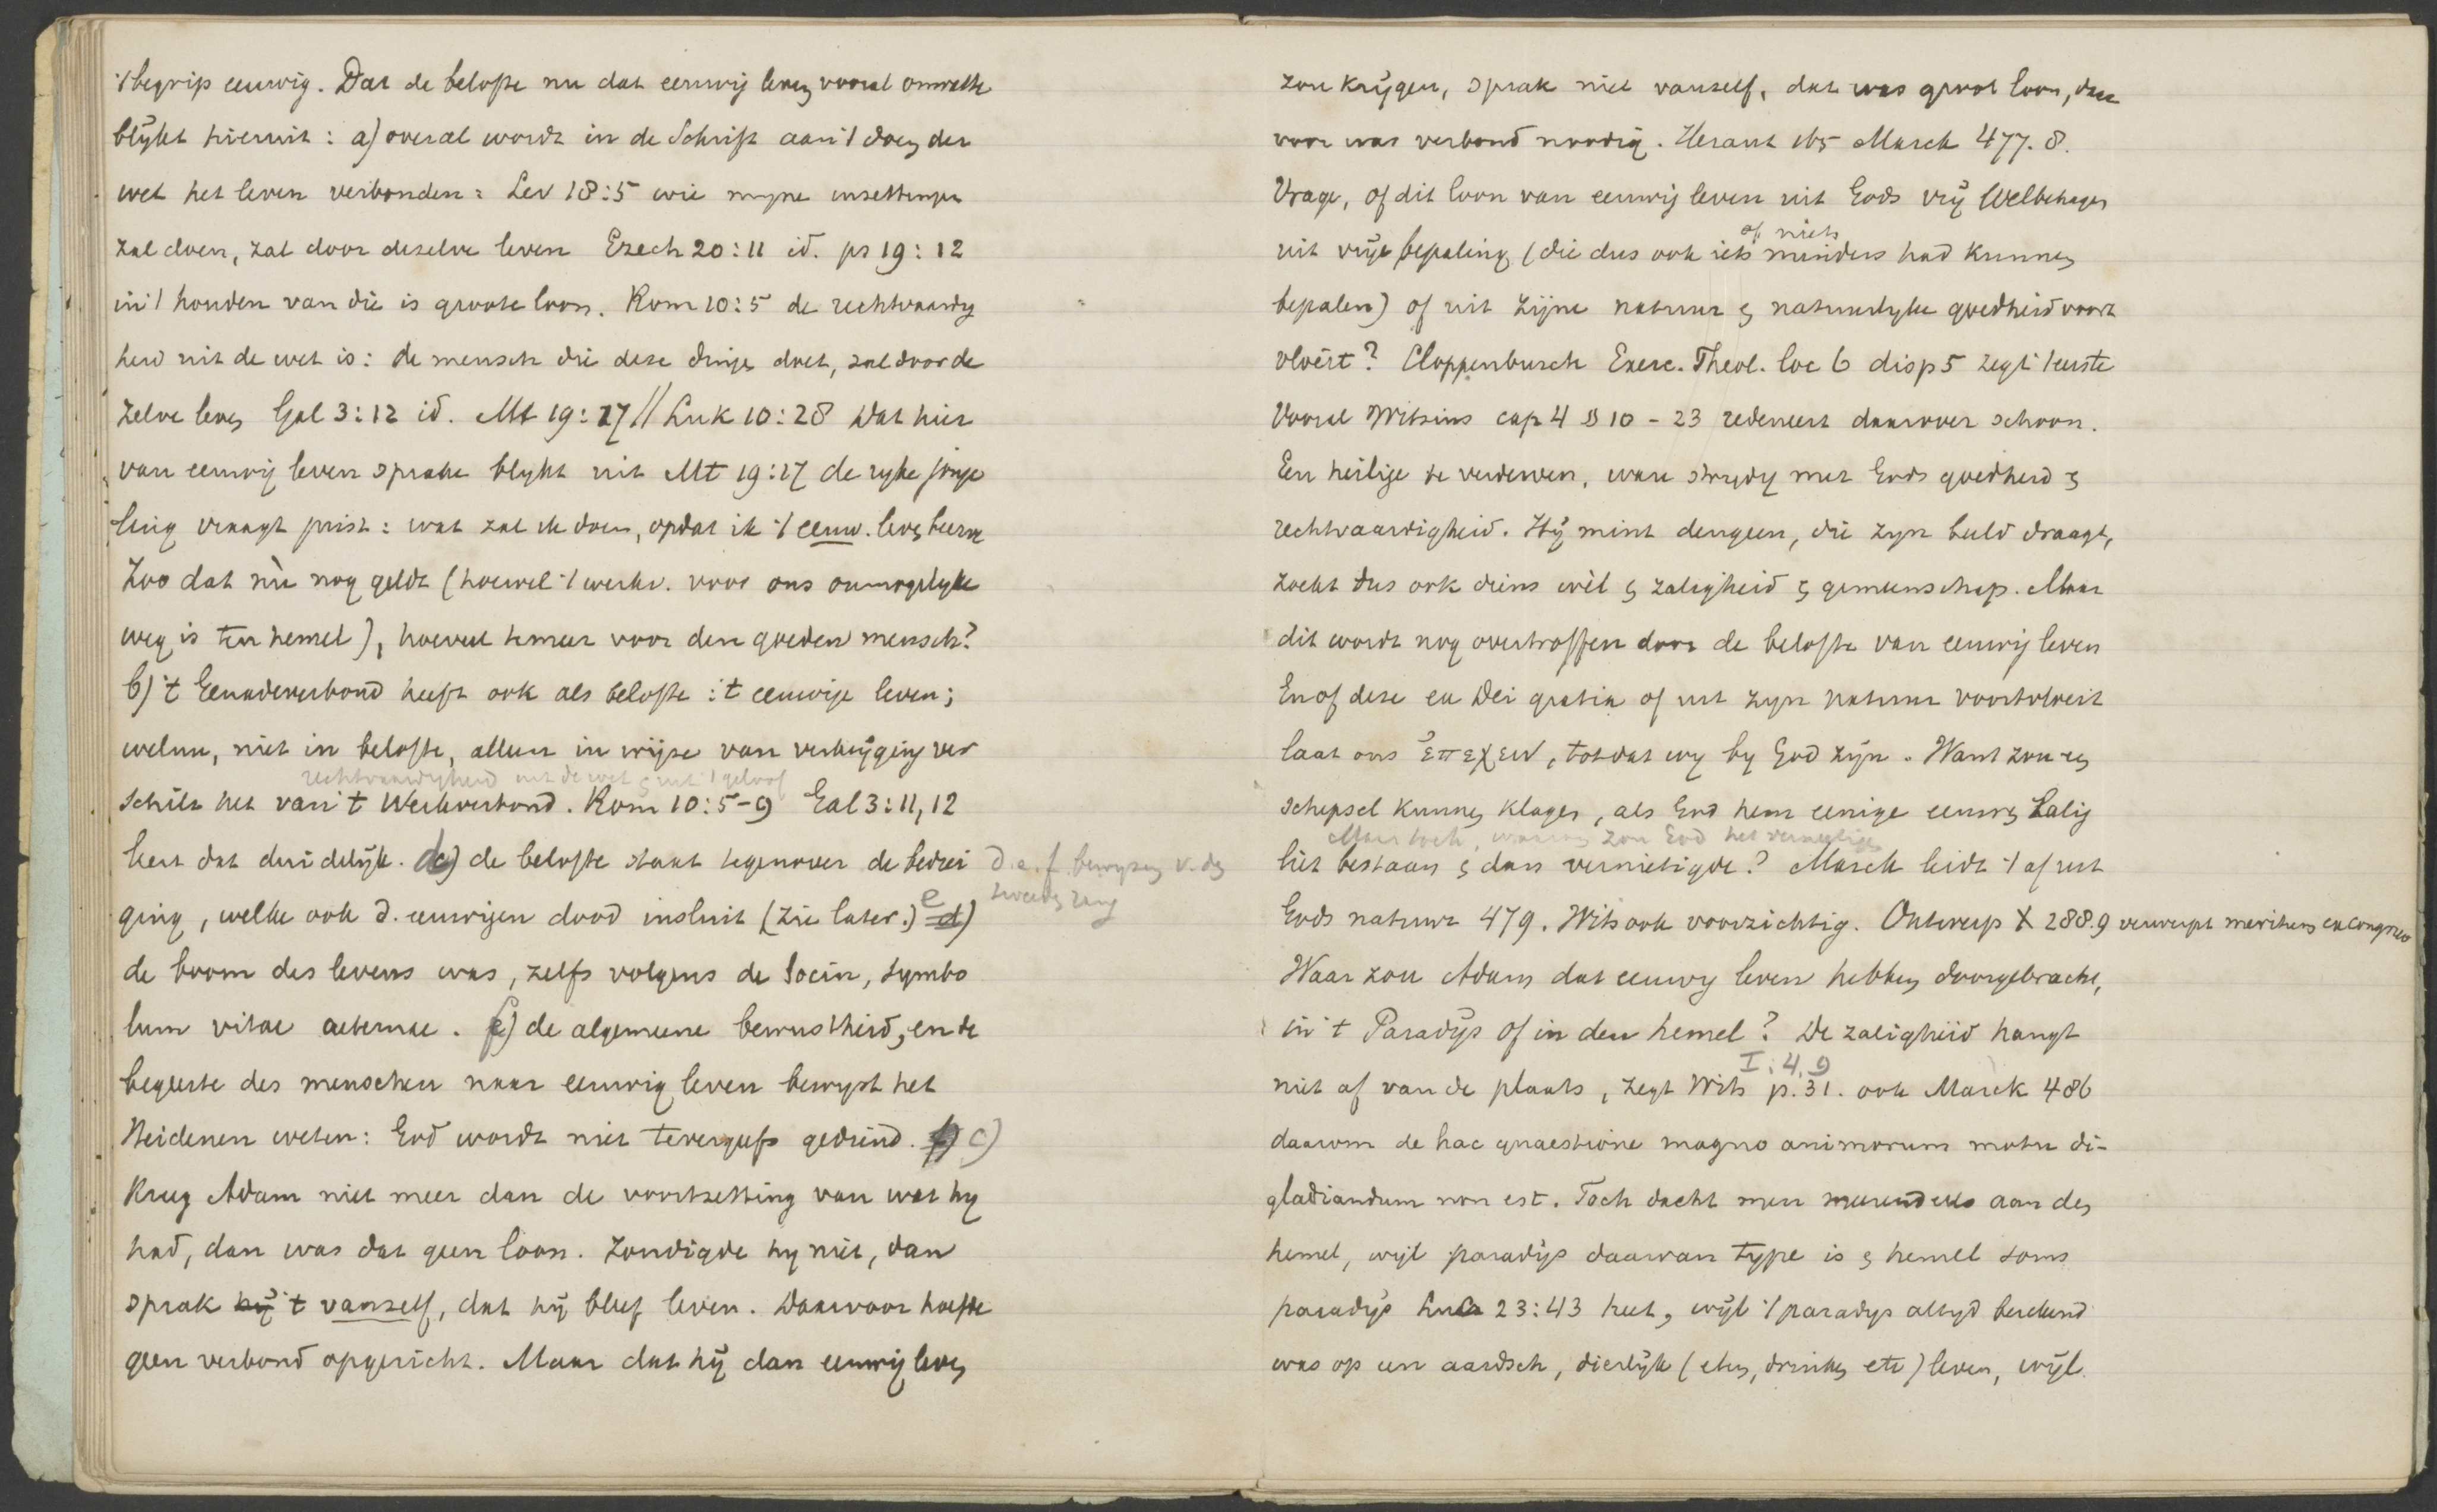 't begrip eeuwig. Dat de belofte nu dat eeuwig leven vooral omvatte
blijkt hieruit: a) overal wordt in de Schrift aan 't doen der
wet het leven verbonden: Lev 18:5 wie mijne insettingen
zal doen, zal door deselve leven Ezech 20:11 id. ps 19:12
in 't houden van die is groote loon. Rom 10:5 de rechtvaardig
heid uit de wet is: de mensch die dese dingen doet, zal door de
zelve leven Gal 3:12 id. Mt 19:17 // Luk 10:28 Dat hier
van eeuwig leven sprake blykt uit Mt 19:17 de ryke jonge
ling vraagt juist: wat zal ik doen, opdat ik 't eeuw. leven beerve
Zoo dat nù nog geldt (hoewel 't werkv. voor ons onmogelyke
weg is ten hemel), hoeveel temeer voor den goeden mensch?
b) 't Genadeverbond heeft ook als belofte: 't eeuwige leven;
welnu, niet in belofte, alleen in wijze van verkrijging ver
rechtvaardigheid uit de wet en uit 't geloof
schilt het van 't Werkverbond. Rom 10:5-9 Gal 3:11,12
leert dat duidelijk. d) de belofte staat tegenover de bedrei
d. e. f. bewyzen v. den
tweeden rang
ging, welke ook d. eeuwigen dood insluit (zie later.) e d)
de boom des levens was, zelfs volgens de Socin, symbo
lum vitae aeternae. f) de algemeene bewustheid, en de
begeerte des menschen naar eeuwig leven bewyst het
Heidenen weten: God wordt niet tevergeefs gediend. f) c)
Kreeg Adam niet meer dan de voortzetting van wat hy
had, dan was dat geen loon. Zondigde hy niet, dan
sprak hij 't vanzelf, dat hij bleef leven. Daarvoor hoefde
geen verbond opgericht. Maar dat hij dan eeuwig leven
zou krijgen, sprak niet vanzelf, dat was groot loon, daar
voor was verbond noodig. Heraut 165 Marck 477.8.
Vrage, of dit loon van eeuwig leven uit Gods vrij Welbehagen
of niets
uit vrije bepaling (die dus ook iets minders had kunnen
bepalen) of uit zijne natuur en natuurlyke goedheid voort
vloeit? Cloppenburch Exerc. Theol. loc 6 disp 5 zegt 't eerste
Vooral Witsius cap 4 § 10 - 23 redeneert daarover schoon.
Een heilige te verderven, ware strydig met Gods goedheid en
rechtvaardigheid. Hij mint dengeen, die zyn beeld draagt,
zoekt dus ook diens wèl en zaligheid en gemeenschap. Maar
dit wordt nog overtroffen door de belofte van eeuwig leven
En of dese ex Dei gratia of uit zyn natuur voortvloeit
laat ons ἐπεχειν, totdat wy by God zijn. Want zou een
schepsel kunnen klagen, als God hem eenige eeuwen zalig
Maar toch, waarom zou God het vernietigen
liet bestaan en dan vernietigde? Marck leidt 't af uit
Gods natuur 479. Wits ook voorzichtig. Ontwerp X 288.9 verwerpt meritum ex congruo
Waar zou Adam dat eeuwig leven hebben doorgebracht,
in 't Paradijs of in den hemel? De zaligheid hangt
I: 4, 9
niet af van de plaats, zegt Wits p. 31. ook Marck 486
daarom de hac quaestione magno animorum motu di-
gladiandum non est. Toch dacht men meerendeels aan den
hemel, wijl paradijs daarvan type is en hemel soms
paradijs Luc 23:43 heet, wijl 't paradys altyd berekend
was op een aardsch, dierlijk (eten, drinken etc) leven, wijl